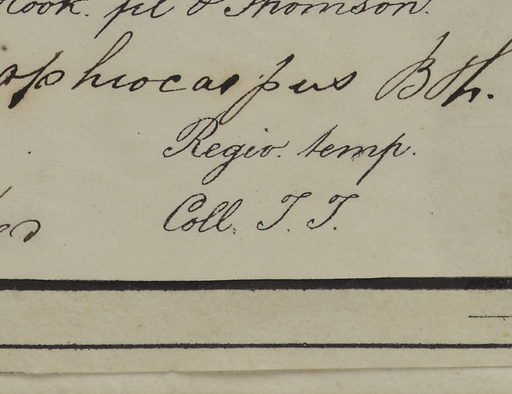 Hook. fil & Thomson.
ophiocarpus Bth.
Regio. temp.
Coll. T. T.